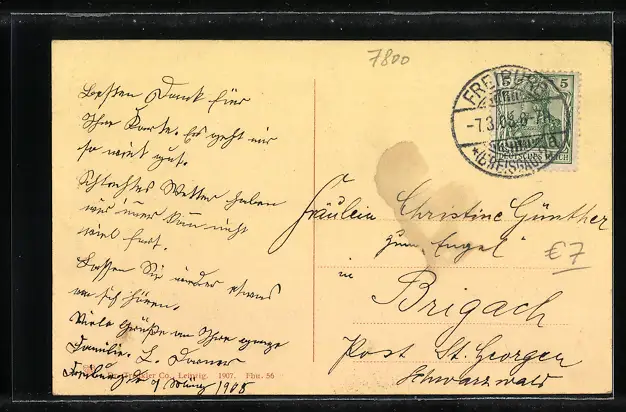 7800
FREIBURG
-7.3.08.6-7N.
* (BREISGAU) *
5
DEUTSCHES REICH
Besten Dank für
Ihre Karte. Es geht mir
so weit gut.
Schlechtes Wetter haben
wir immer kann nicht
viel fort.
Lassen Sie wieder etwas
von sich hören.
Viele Grüße an Ihre ganze
Familie. L.
Freiburg, März 1908
Fräulein Christine Günther
zum "Engel"
in
Brigach
Post St. Georgen
Schwarzwald
€7
Trenkler Co., Leipzig. 1907. Fbu. 56